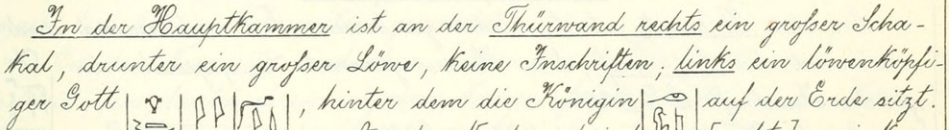 In der Hauptkammer ist an der Thürwand rechts ein großer Scha-
kal, drunter ein großer Löwe, keine Inschriften; links ein löwenköpfi-
ger Gott , hinter dem die Königin auf der Erde sitzt.